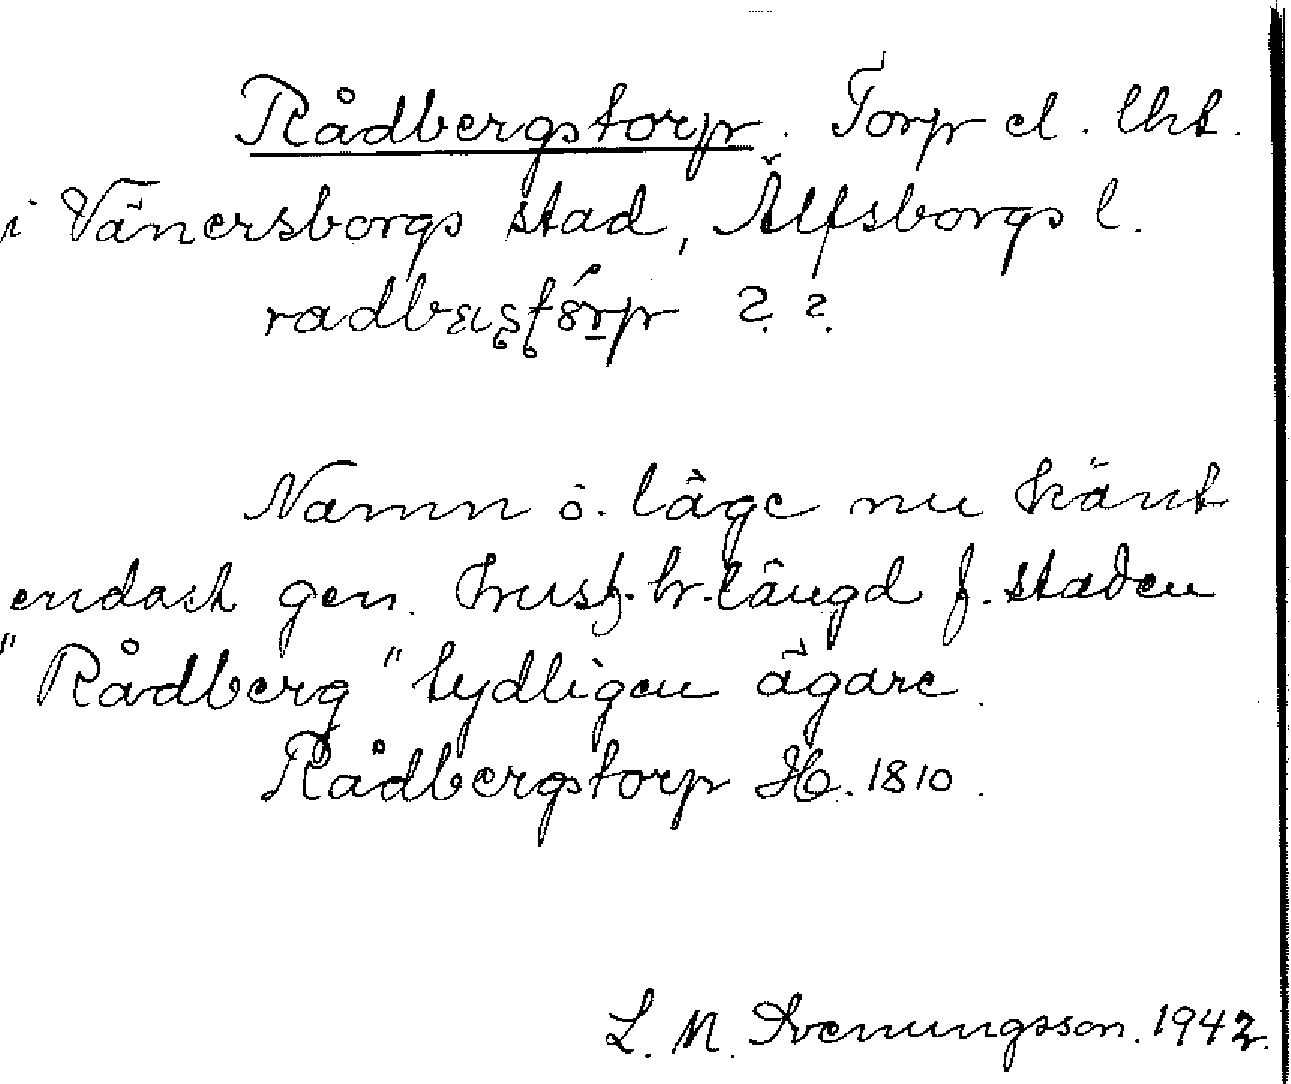 Rådbergstorp. Torp el. lht.
i Vänersborgs stad, Älfsborgs l.
? ?
Namn o. läge nu känt
endast gen. husf.-längd f. staden
"Rådberg" tydligen ägare.
Rådbergstorp H. 1810.
L. M. Svenungsson. 1942.